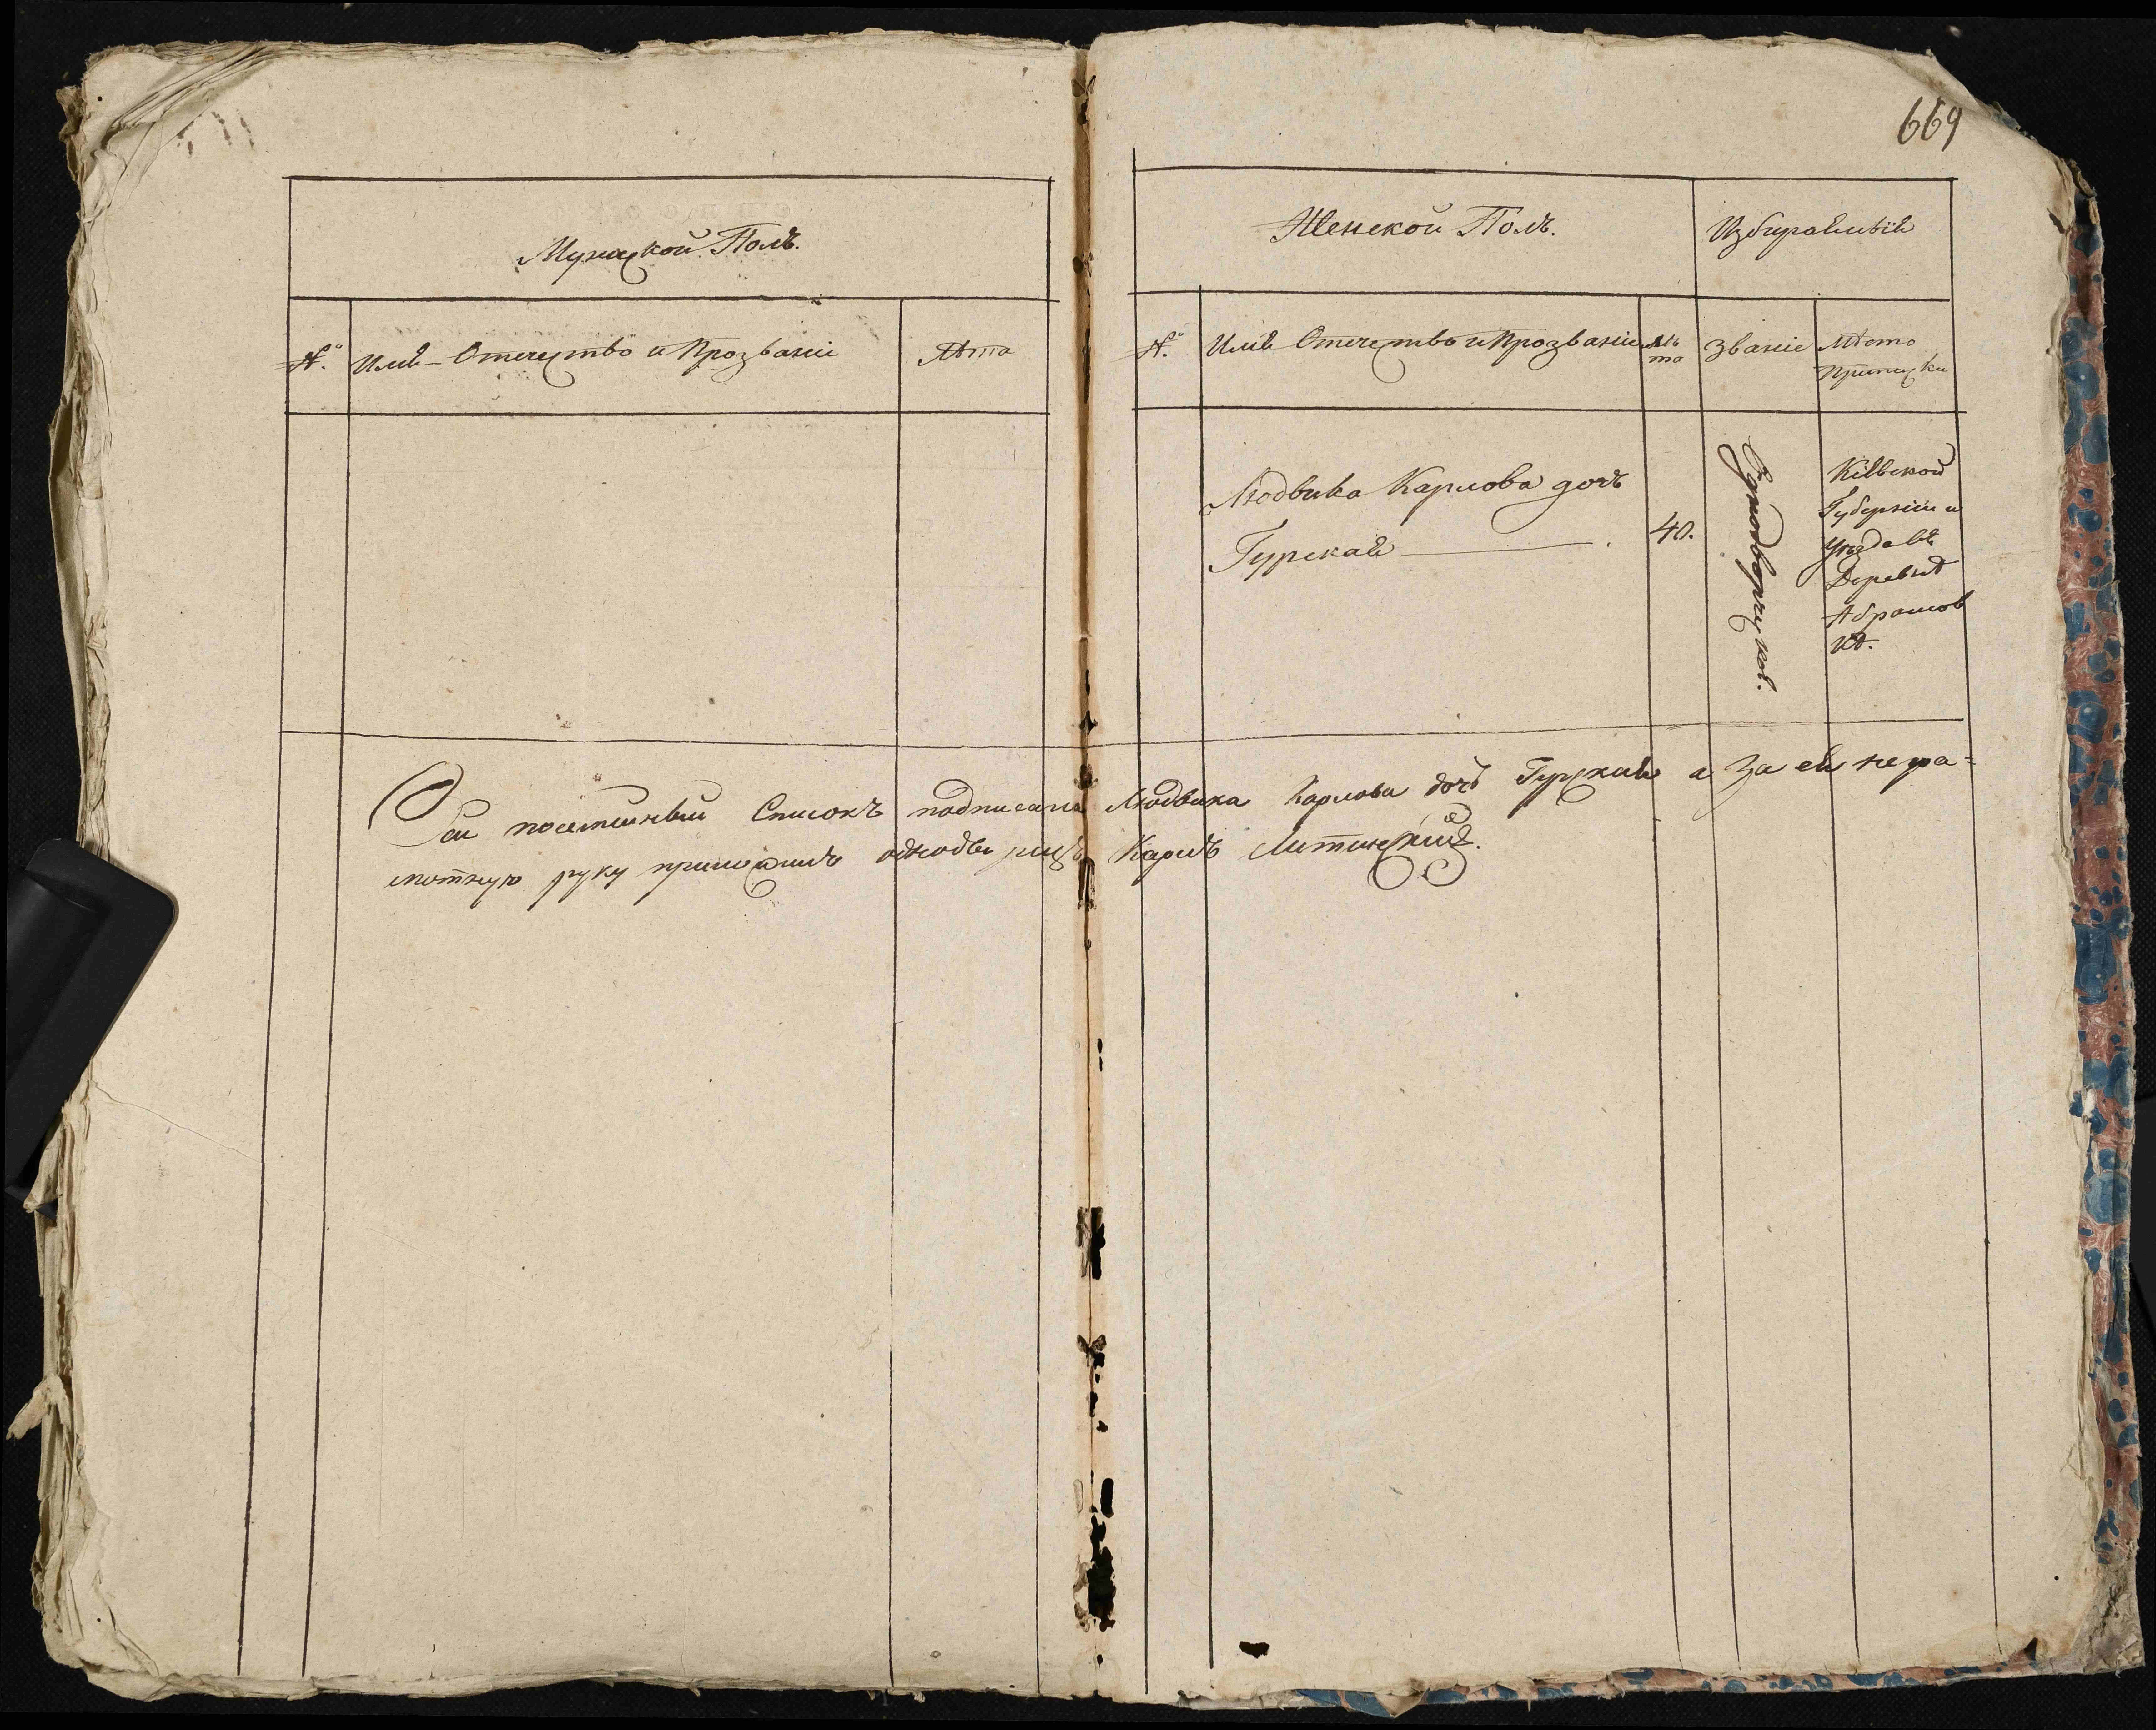 669
Мужской Полъ.
№. Имя Отечество и Прозваніе Лѣта
Женской Полъ. Избираемыя
№. Имя Отечество и Прозваніе Лѣта Званіе Мѣсто
Приписки
Людвика Карлова дочь
Гурская
40.
Однодворческое.
Кіевской
Губерніи и
Уезда въ
Деревнѣ
Абрамов
кѣ.
Сей посемейный Списокъ подписала Людвика Карлова дочь Гурская а за ея негра=
мотную руку приложилъ однодворецъ Карлъ Литинскій.